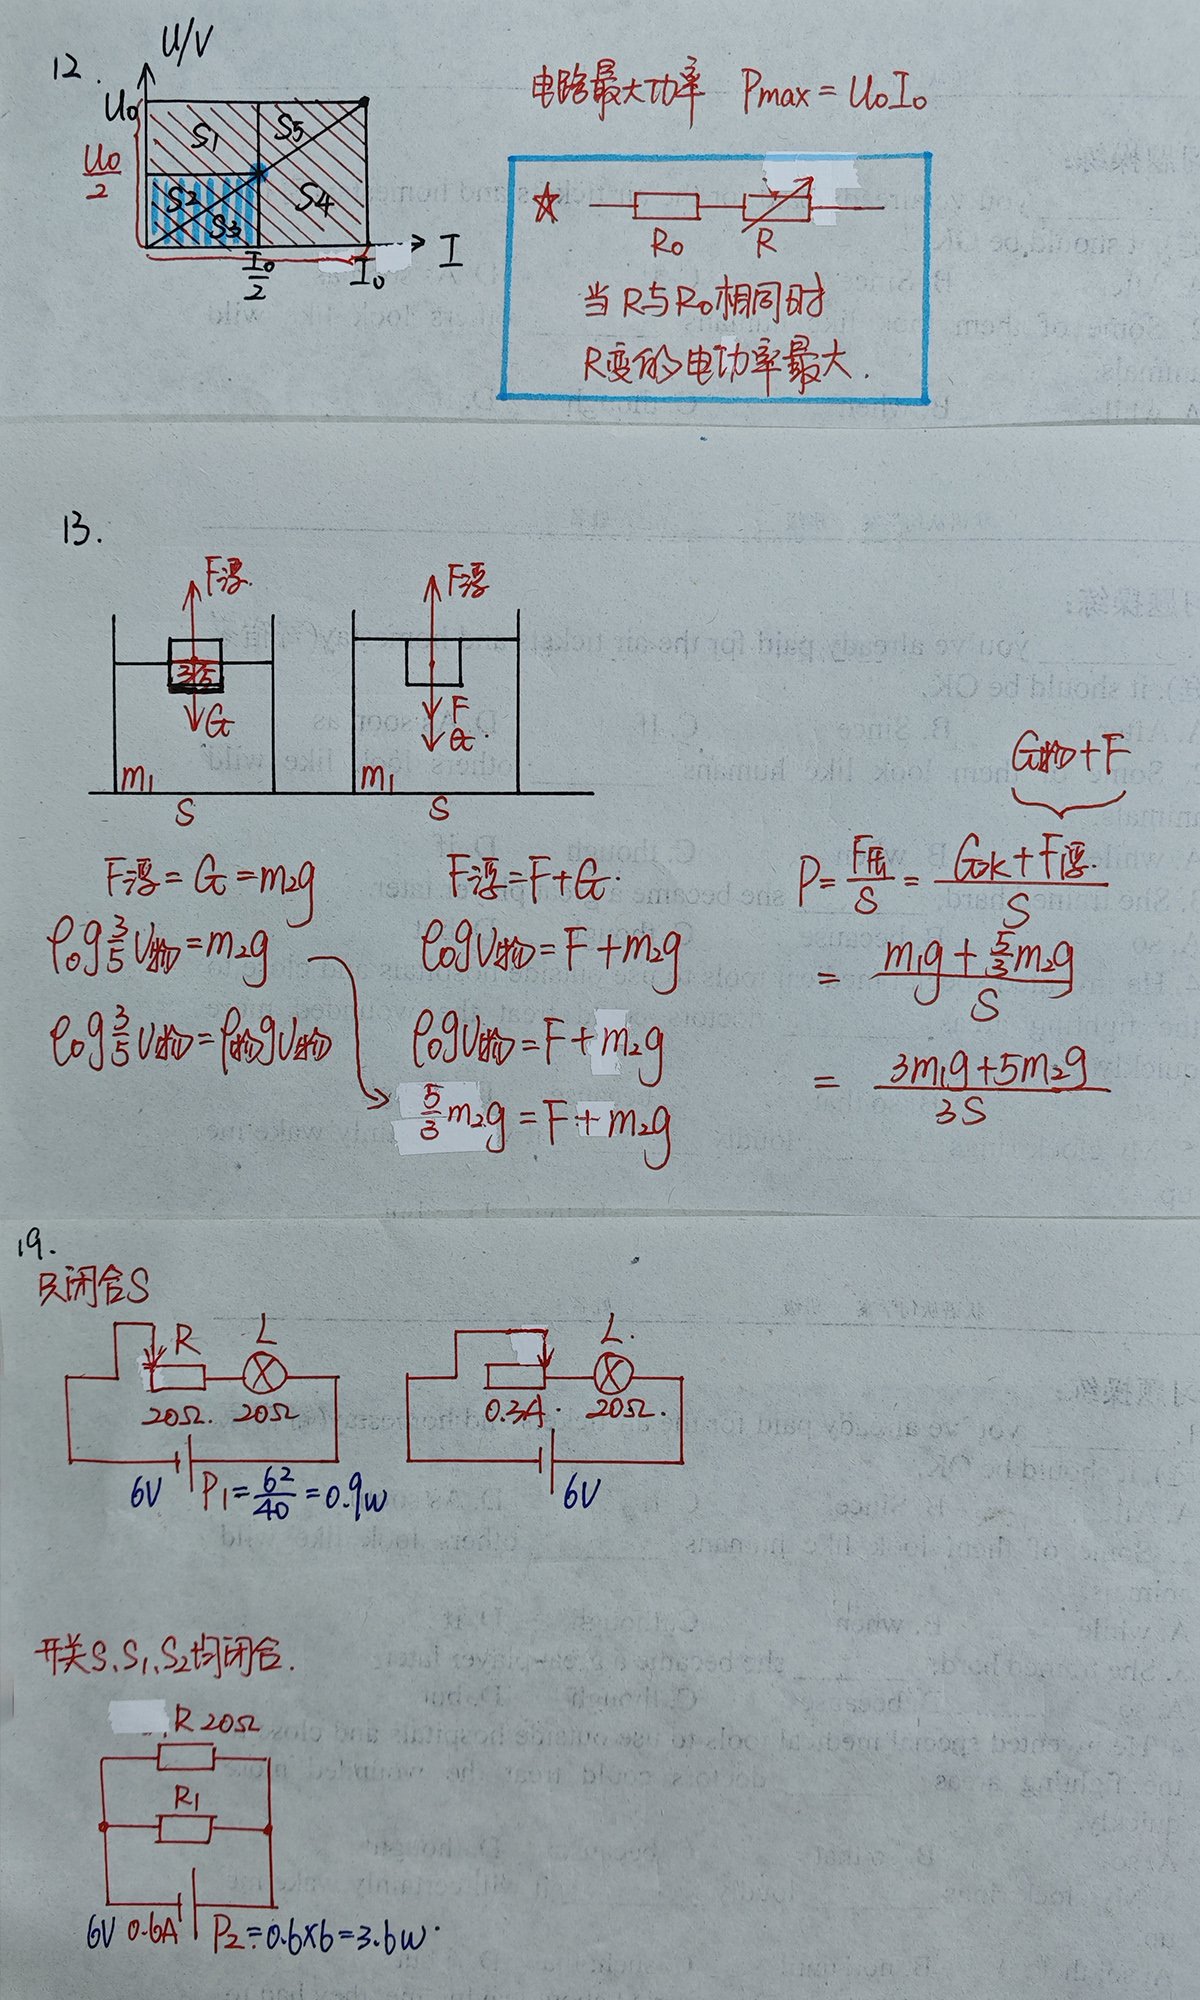 12.
U/V
U₀
U₀/2
S1
S5
S2
S3
S4
I₀/2
I₀
I
电路最大功率 Pmax = U₀I₀
☆
R₀
R
当R与R₀相同时
R变的电功率最大.
13.
F浮.
3/5
G
m₁
S
F浮
F
G.
m₁
S
F浮 = G = m₂g
ρ₀g3/5V物 = m₂g
ρ₀g3/5V物 = ρ物gV物
F浮 = F + G.
ρ₀gV物 = F + m₂g
ρ₀gV物 = F + m₂g
5/3m₂g = F + m₂g
G物 + F
P = F压/S = G水 + F浮./S
= m₁g + 5/3m₂g/S
= 3m₁g + 5m₂g/3S
19.
只闭合S
R
L
20Ω. 20Ω
6V P₁ = 6²/40 = 0.9w
L.
0.3A. 20Ω.
6V
开关S、S₁、S₂均闭合.
R 20Ω
R₁
6V 0.6A P₂ = 0.6×6 = 3.6w.